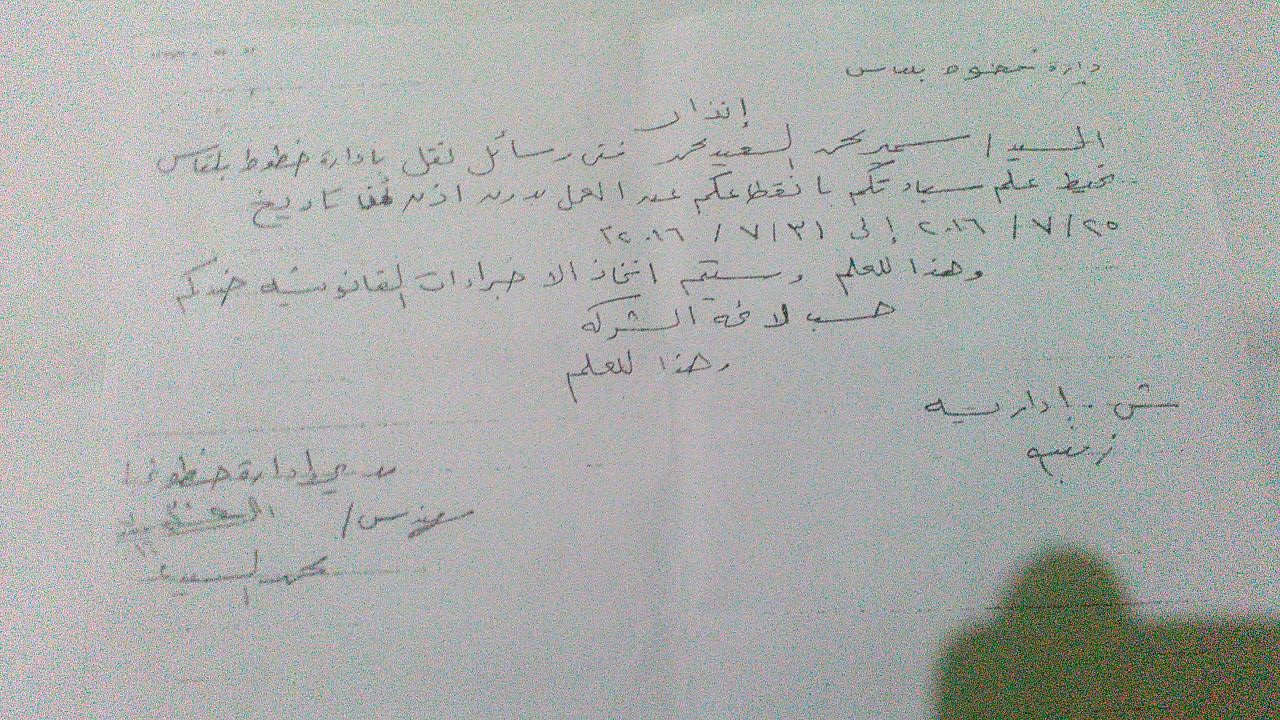 إدارة خطوط بلقاس
إنذار
السيد / سمير محمد السعيد محمد فنى رسائل نقل بادارة خطوط بلقاس
نحيط علم سيادتكم بانقطاعكم عن العمل بدون اذن تاريخ
٢٥ / ٧ / ٢٠١٦ إلى ٣١ / ٧ / ٢٠١٦
وهذا للعلم وستيم اتخاذ الاجراءات القانونيه ضدكم
حسب لائحة الشركه
وهذا للعلم
ش . إداريه
زينب
مدير إدارة خطوط
مهندس /
محمد السعيد